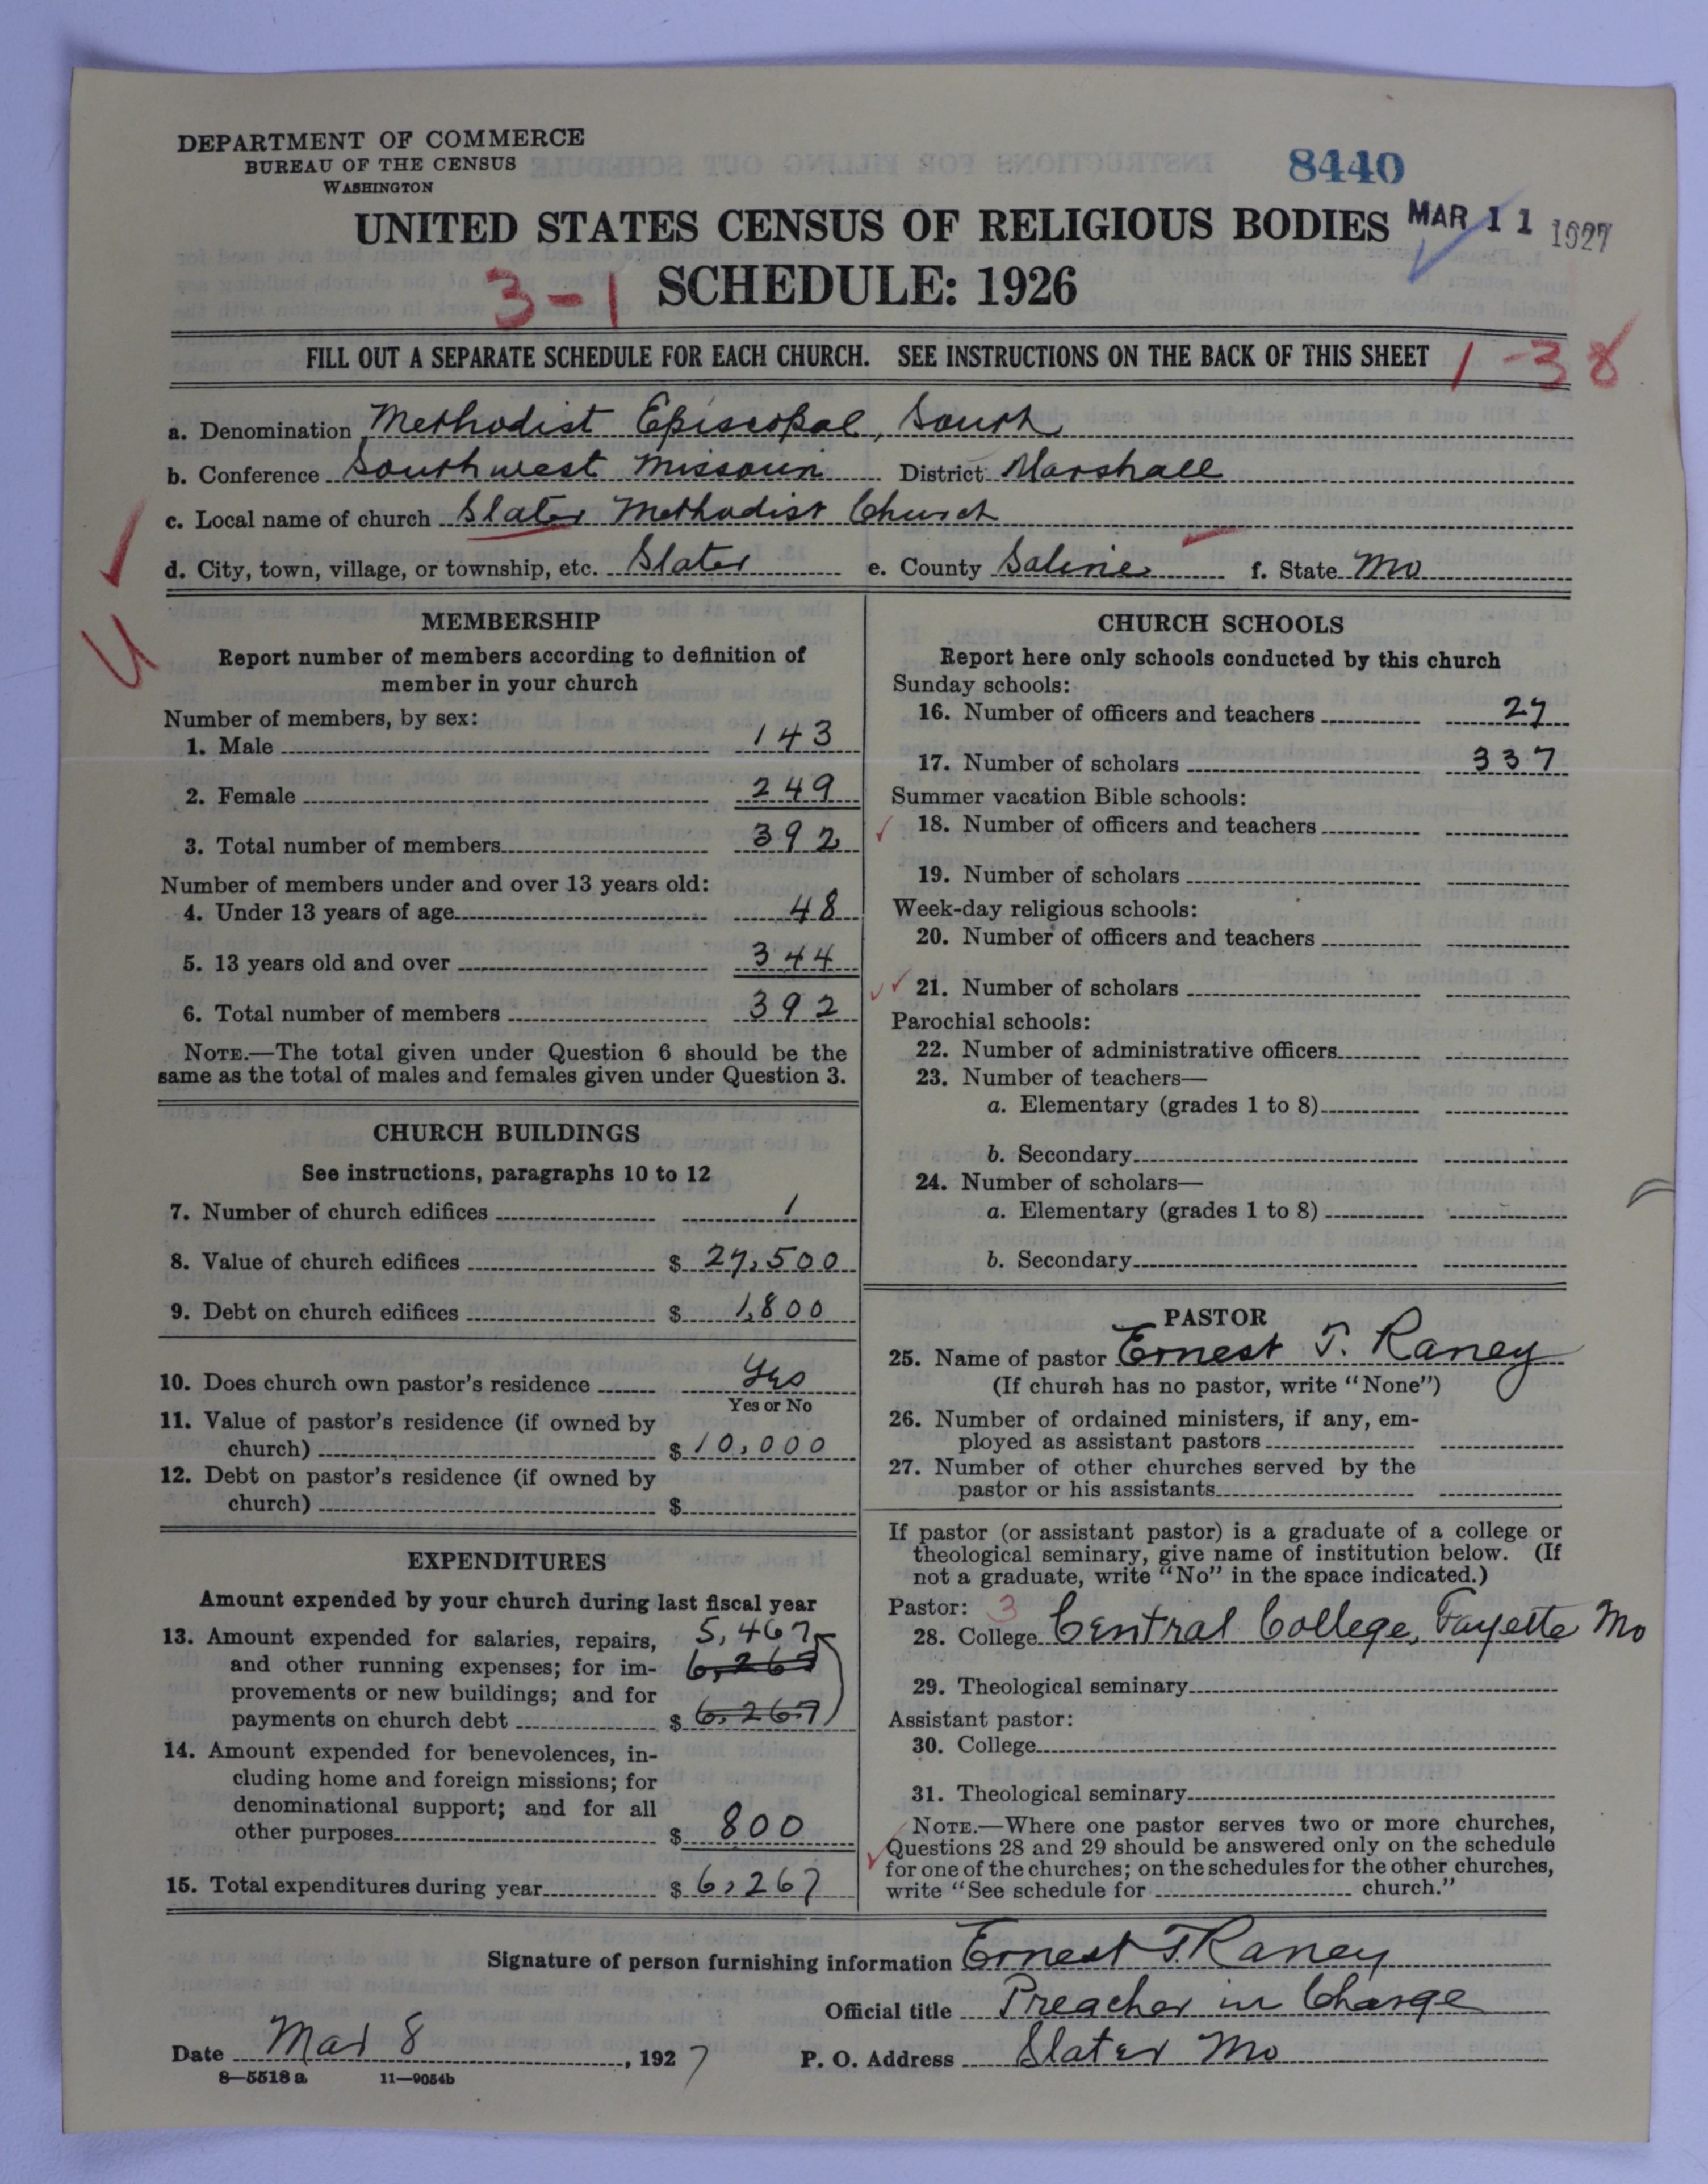 DEPARTMENT OF COMMERCE
BUREAU OF THE CENSUS
WASHINGTON
8440
UNITED STATES CENSUS OF RELIGIOUS BODIES
MAR 11 1927
3-1
SCHEDULE: 1926
FILL OUT A SEPARATE SCHEDULE FOR EACH CHURCH. SEE INSTRUCTIONS ON THE BACK OF THIS SHEET
1-38
a. Denomination Methodist Episcopal, South
b. Conference Southwest Missouri District Marshall
c. Local name of church Slater Methodist Church
d. City, town, village, or township, etc. Slater e. County Saline f. State Mo
MEMBERSHIP
Report number of members according to definition of
member in your church
Number of members, by sex:
1. Male 143
2. Female 249
3. Total number of members 392
Number of members under and over 13 years old:
4. Under 13 years of age 48
5. 13 years old and over 344
6. Total number of members 392
NOTE.—The total given under Question 6 should be the
same as the total of males and females given under Question 3.
CHURCH BUILDINGS
See instructions, paragraphs 10 to 12
7. Number of church edifices 1
8. Value of church edifices $ 27,500
9. Debt on church edifices $ 1,800
10. Does church own pastor's residence Yes
Yes or No
11. Value of pastor's residence (if owned by
church) $ 10,000
12. Debt on pastor's residence (if owned by
church) $
EXPENDITURES
Amount expended by your church during last fiscal year
13. Amount expended for salaries, repairs, 5,467
and other running expenses; for im- 6,267
provements or new buildings; and for
payments on church debt $ 6,267
14. Amount expended for benevolences, in-
cluding home and foreign missions; for
denominational support; and for all
other purposes $ 800
15. Total expenditures during year $ 6,267
CHURCH SCHOOLS
Report here only schools conducted by this church
Sunday schools:
16. Number of officers and teachers 27
17. Number of scholars 337
Summer vacation Bible schools:
18. Number of officers and teachers
19. Number of scholars
Week-day religious schools:
20. Number of officers and teachers
21. Number of scholars
Parochial schools:
22. Number of administrative officers
23. Number of teachers—
a. Elementary (grades 1 to 8)
b. Secondary
24. Number of scholars—
a. Elementary (grades 1 to 8)
b. Secondary
PASTOR
25. Name of pastor Ernest T. Raney
(If church has no pastor, write "None")
26. Number of ordained ministers, if any, em-
ployed as assistant pastors
27. Number of other churches served by the
pastor or his assistants
If pastor (or assistant pastor) is a graduate of a college or
theological seminary, give name of institution below. (If
not a graduate, write "No" in the space indicated.)
Pastor: 3
28. College Central College, Fayette Mo
29. Theological seminary
Assistant pastor:
30. College
31. Theological seminary
NOTE.—Where one pastor serves two or more churches,
Questions 28 and 29 should be answered only on the schedule
for one of the churches; on the schedules for the other churches,
write "See schedule for church."
Signature of person furnishing information Ernest T. Raney
Official title Preacher in Charge
Date Mar 8, 1927 P. O. Address Slater Mo
8—5518 a 11—9054b